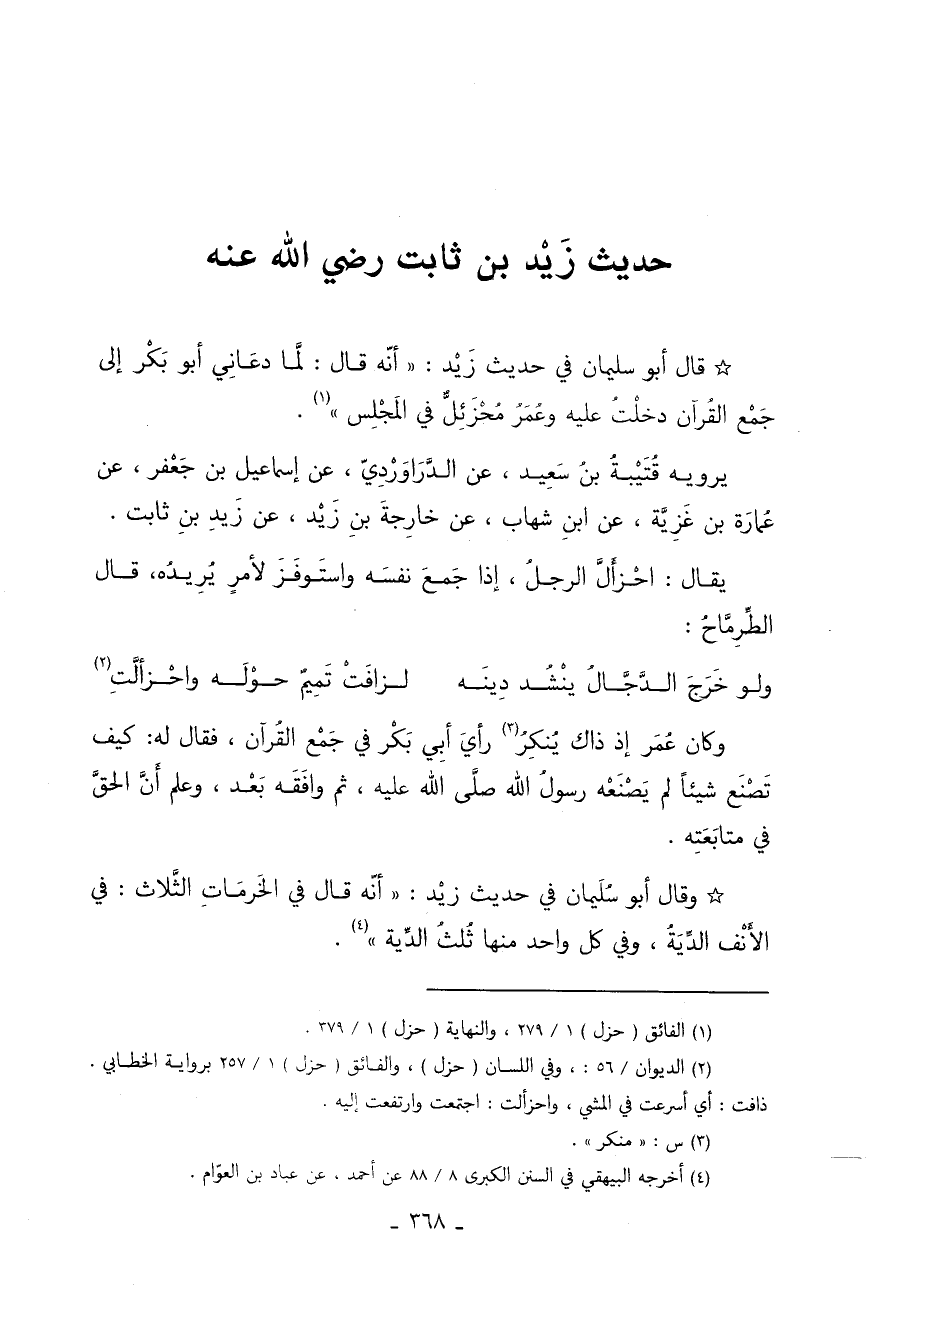 حديث زَيْد بن ثابت رضي الله عنه
☆ قال أبو سليمان في حديث زَيْد : « أنّه قال : لمَّا دعَاني أبو بَكْر إلى
جَمْع القُرآن دخلْتُ عليه وعُمَرُ مُحْزَئِلٌّ في المَجْلِس »(١) .
يرويه قُتَيْبةُ بنُ سَعِيد ، عن الدَّرَاوَرْدِيّ ، عن إسماعيل بن جَعْفر ، عن
عُمارَة بن غَزِيَّة ، عن ابنِ شهاب ، عن خارجةَ بنِ زَيْد ، عن زَيدِ بنِ ثابت .
يقال : احْزأَلَّ الرجلُ ، إذا جَمعَ نفسَه واستَوفَزَ لأمرٍ يُرِيدُه، قال
الطِّرِمَّاحُ :
ولو خَرَجَ الدَّجَّالُ ينْشُد دِينَه لزافَتْ تَمِيمٌ حوْلَه واحْزألَّتِ(٢)
وكان عُمَر إذ ذاك يُنكِرُ(٣) رأيَ أبي بَكْر في جَمْع القُرآن ، فقال له: كيف
تَصْنَع شيئاً لم يَصْنَعْه رسولُ الله صلَّى الله عليه ، ثم وافَقَه بَعْد ، وعلم أَنَّ الحقَّ
في متابَعَتِه .
☆ وقال أبو سُلَيمان في حديث زيْد : « أنّه قال في الخَرمَاتِ الثَّلاث : في
الأَنْف الدِّيَةُ ، وفي كل واحد منها ثُلثُ الدِّية »(٤) .
(١) الفائق ( حزل ) ١ / ٢٧٩ ، والنهاية ( حزل ) ١ / ٣٧٩ .
(٢) الديوان / ٥٦ : ، وفي اللسان ( حزل ) ، والفائق ( حزل ) ١ / ٢٥٧ برواية الخطابي .
ذافت : أي أسرعت في المشي ، واحزألت : اجتمعت وارتفعت إليه .
(٣) س : « منكر » .
(٤) أخرجه البيهقي في السنن الكبرى ٨ / ٨٨ عن أحمد ، عن عباد بن العوّام .
- ٣٦٨ -